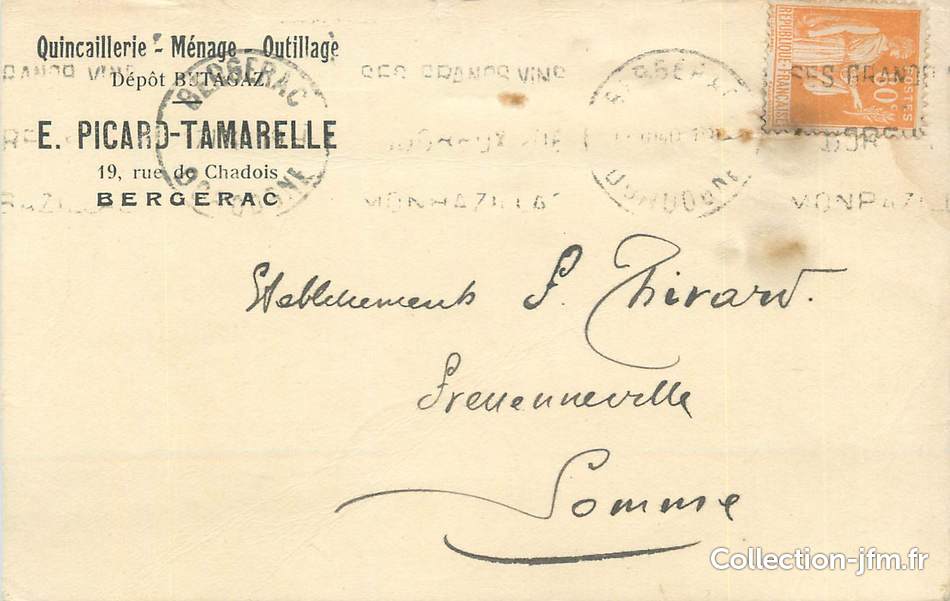 Quincaillerie - Ménage - Outillage
Dépôt BUTAGAZ
E. PICARD-TAMARELLE
19, rue de Chadois
BERGERAC
BERGERAC
DORDOGNE
SES GRANDS VINS
MONBAZILLAC
DORDOGNE
SES GRANDS
MONBAZILLAC
REPUBLIQUE FRANÇAISE
POSTES
80c
Etablissements F. Thirard.
Fressenneville
Somme
Collection-jfm.fr